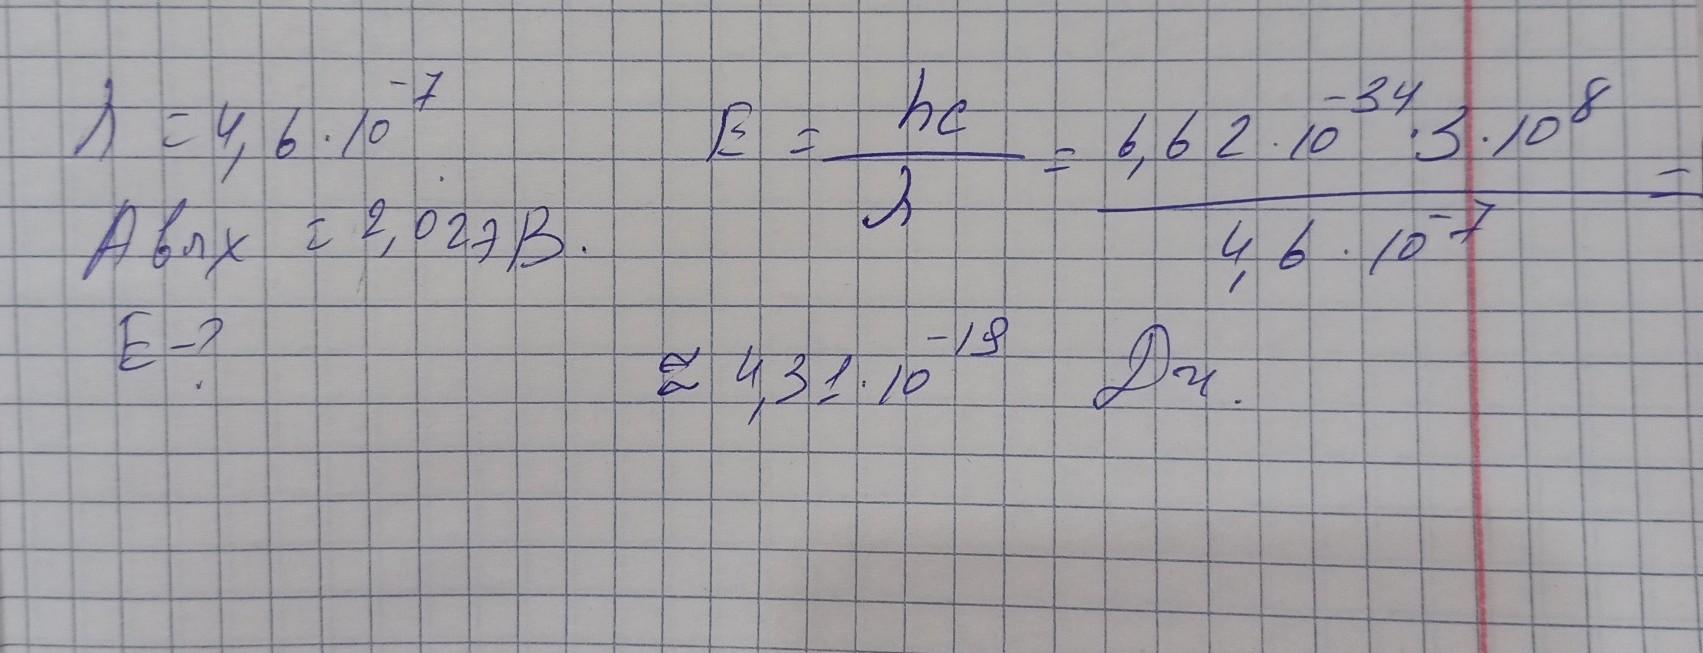 λ = 4,6 · 10⁻⁷
Aвых = 2,02эВ.
E - ?
E = hc / λ = 6,62 · 10⁻³⁴ · 3 · 10⁸ / 4,6 · 10⁻⁷ =
≈ 4,31 · 10⁻¹⁹ Дж.